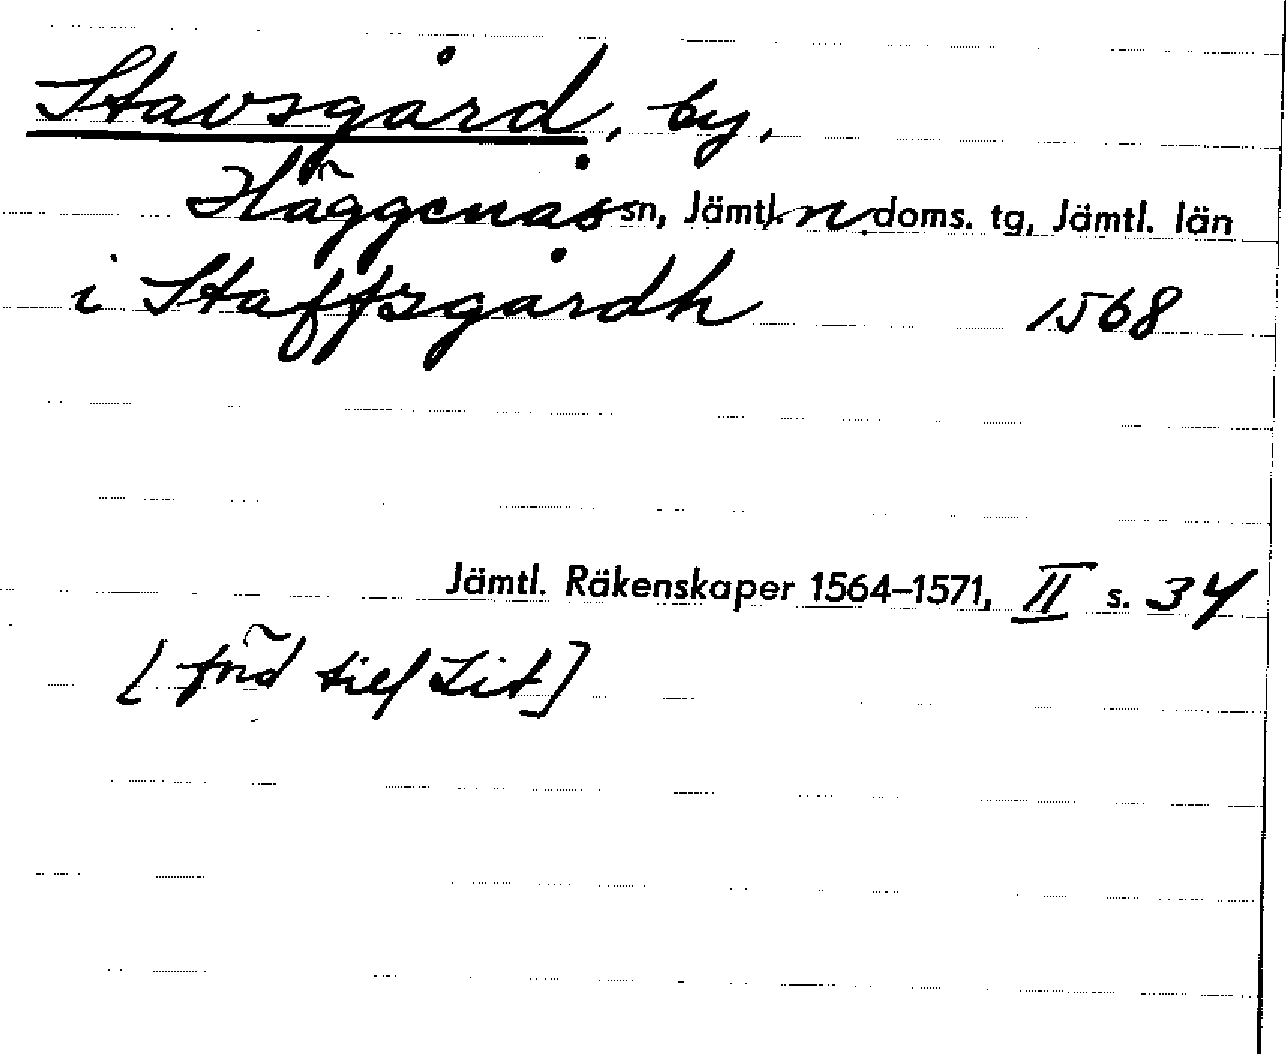 Stavsgård, by,
Häggenås sn, Jämtl. n. doms. tg, Jämtl. län
i Staffsgårdh 1568
Jämtl. Räkenskaper 1564–1571, II s. 34
[förd till Lit]